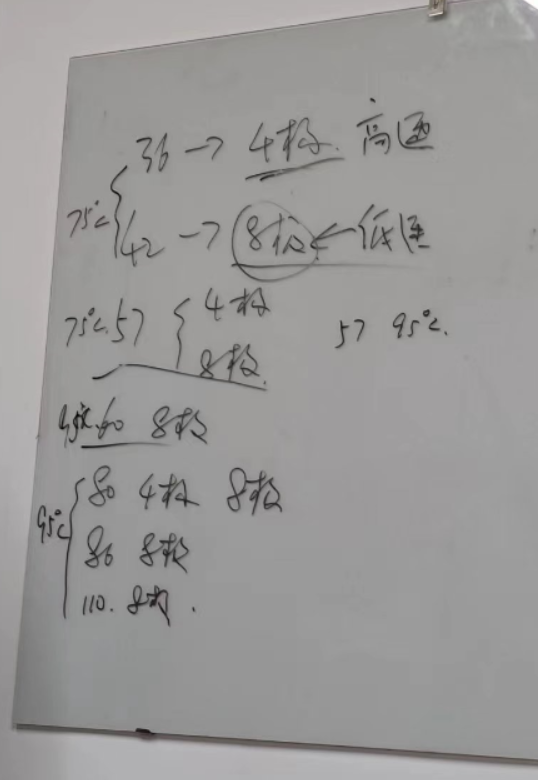 75℃ { 36 → 4极. 高速
42 → 8极 ← 低速
75℃.57 { 4极
8极.
57 95℃.
95℃.60 8极
95℃ { 80 4极 8极
86 8极
110. 8极.